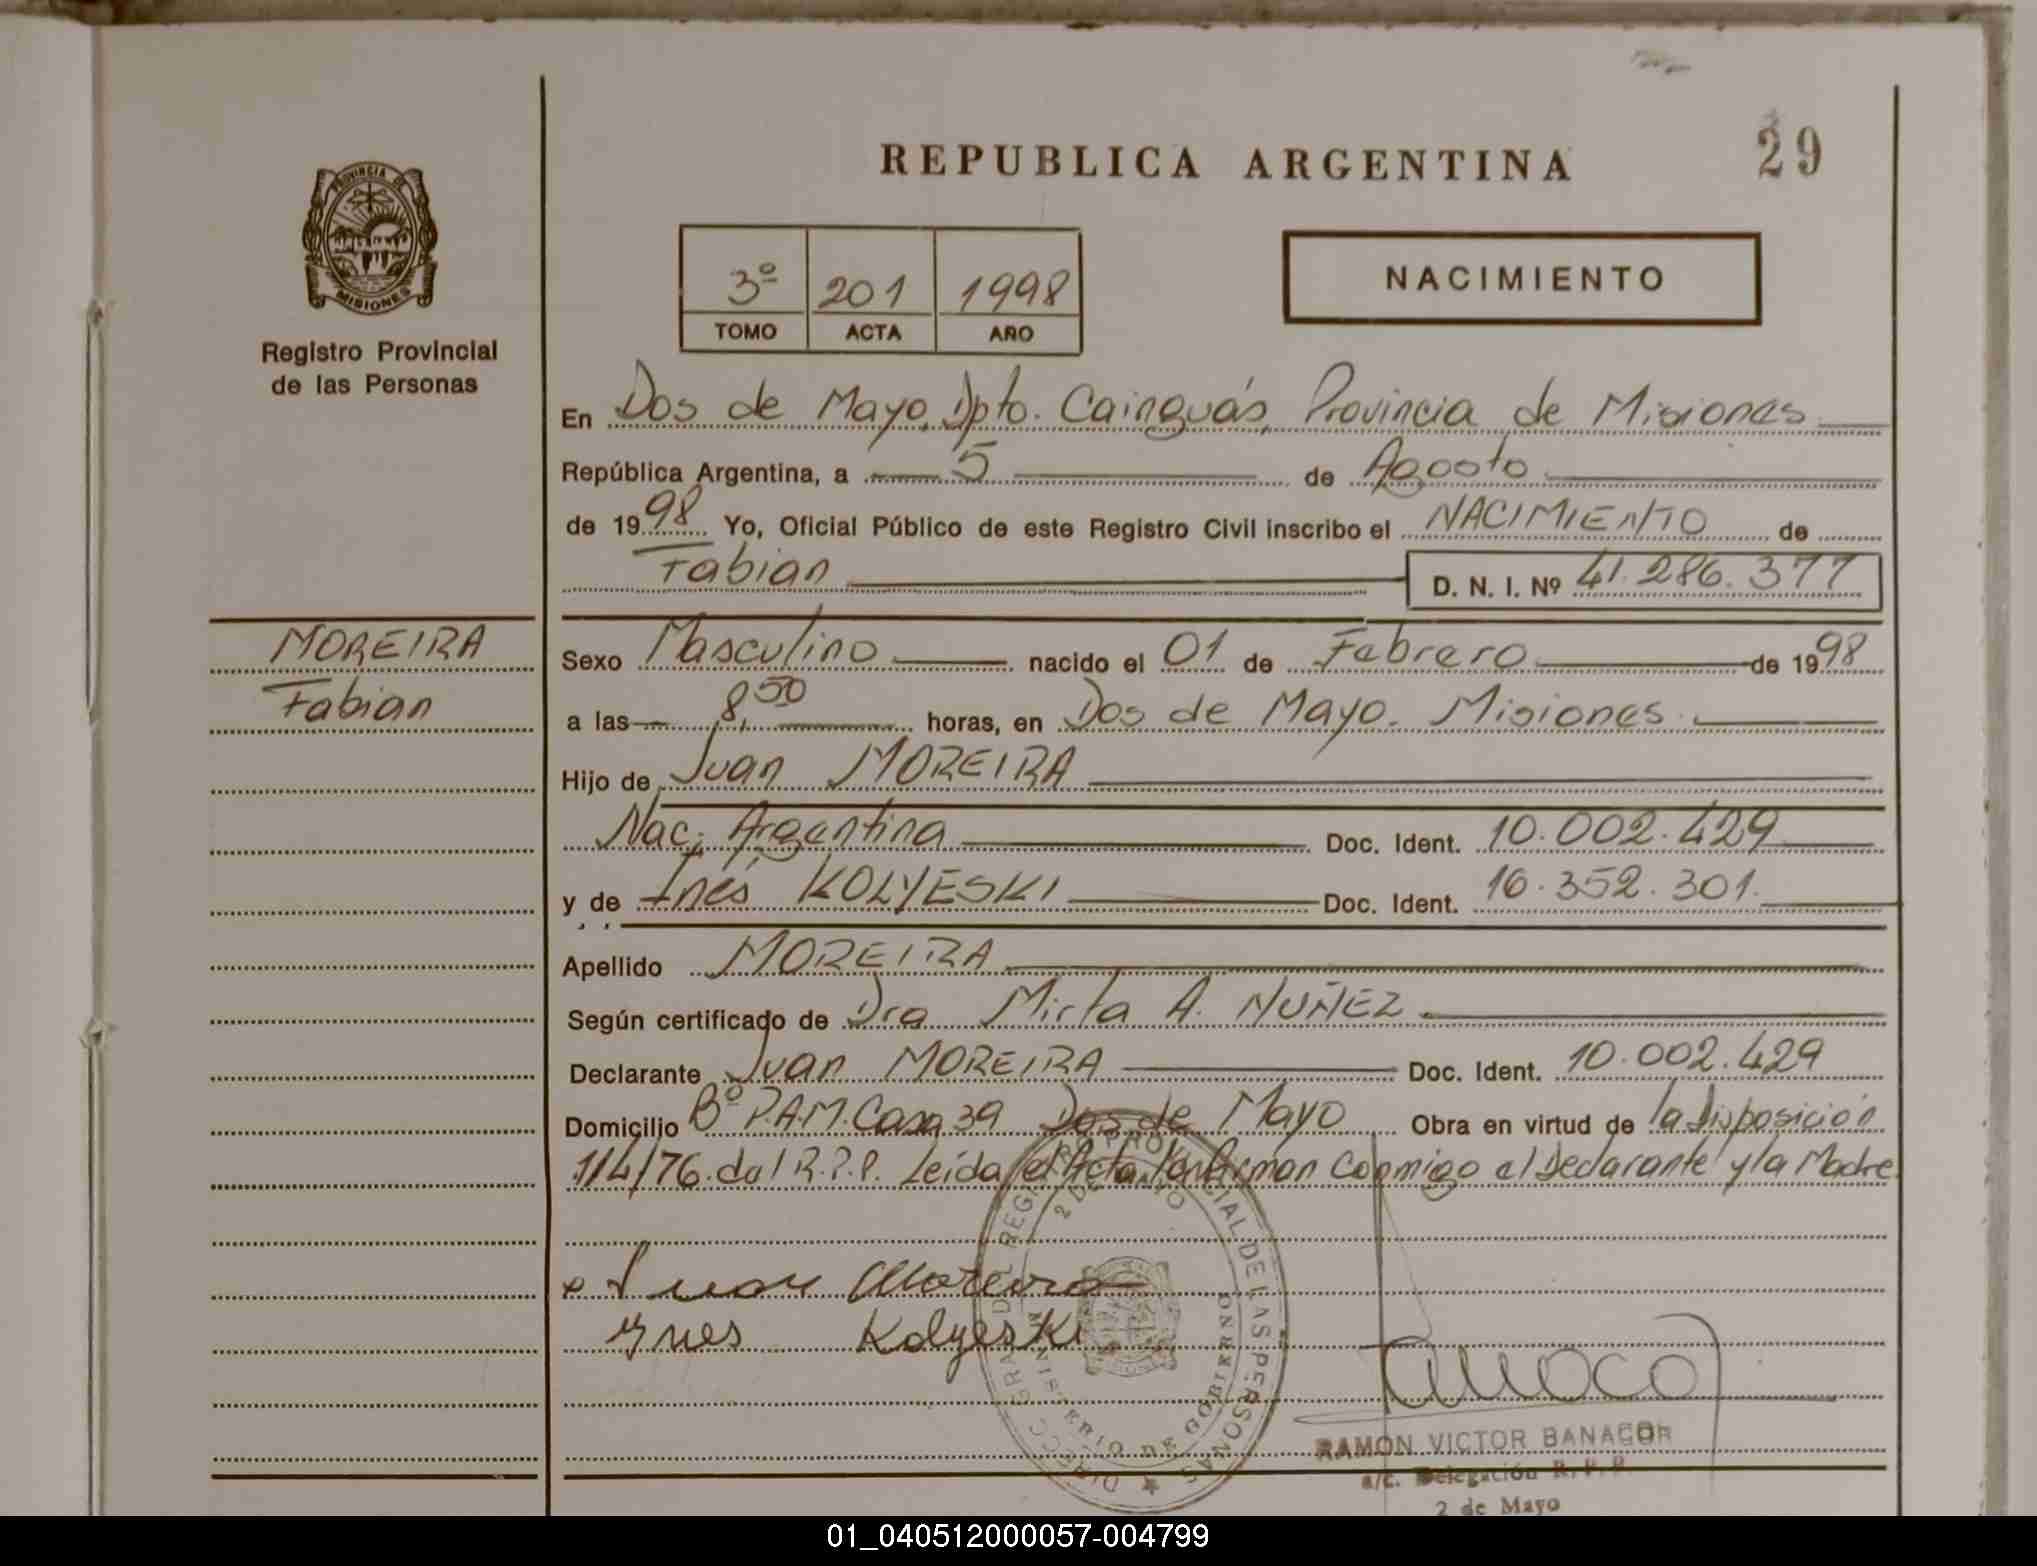 REPUBLICA ARGENTINA
29
PROVINCIA DE
MISIONES
Registro Provincial
de las Personas
3º 201 1998
TOMO ACTA AÑO
NACIMIENTO
En Dos de Mayo, Dpto. Cainguás, Provincia de Misiones
República Argentina, a 5 de Agosto
de 1998 Yo, Oficial Público de este Registro Civil inscribo el NACIMIENTO de
Fabian D. N. I. Nº 41.286.377
MOREIRA
Fabian
Sexo Masculino nacido el 01 de Febrero de 1998
a las 8,50 horas, en Dos de Mayo. Misiones.
Hijo de Juan MOREIRA
Nac. Argentina Doc. Ident. 10.002.429
y de Inés KOLYESKI Doc. Ident. 16.352.301.
Apellido MOREIRA
Según certificado de Dra Mirta A. NUÑEZ
Declarante Juan MOREIRA Doc. Ident. 10.002.429
Domicilio Bº P.A.M. Casa 39 Dos de Mayo Obra en virtud de la Disposición
114/76 del R.P.P. Leída el Acta la firman Conmigo el Declarante y la Madre
Juan Moreira
Ynes Kolyeski
REGISTRO PROVINCIAL DE LAS PERSONAS
2 DE MAYO
MINISTERIO DE GOBIERNO
RAMON VICTOR BANACOR
a/c. Delegación R. P. P.
2 de Mayo
01_040512000057-004799